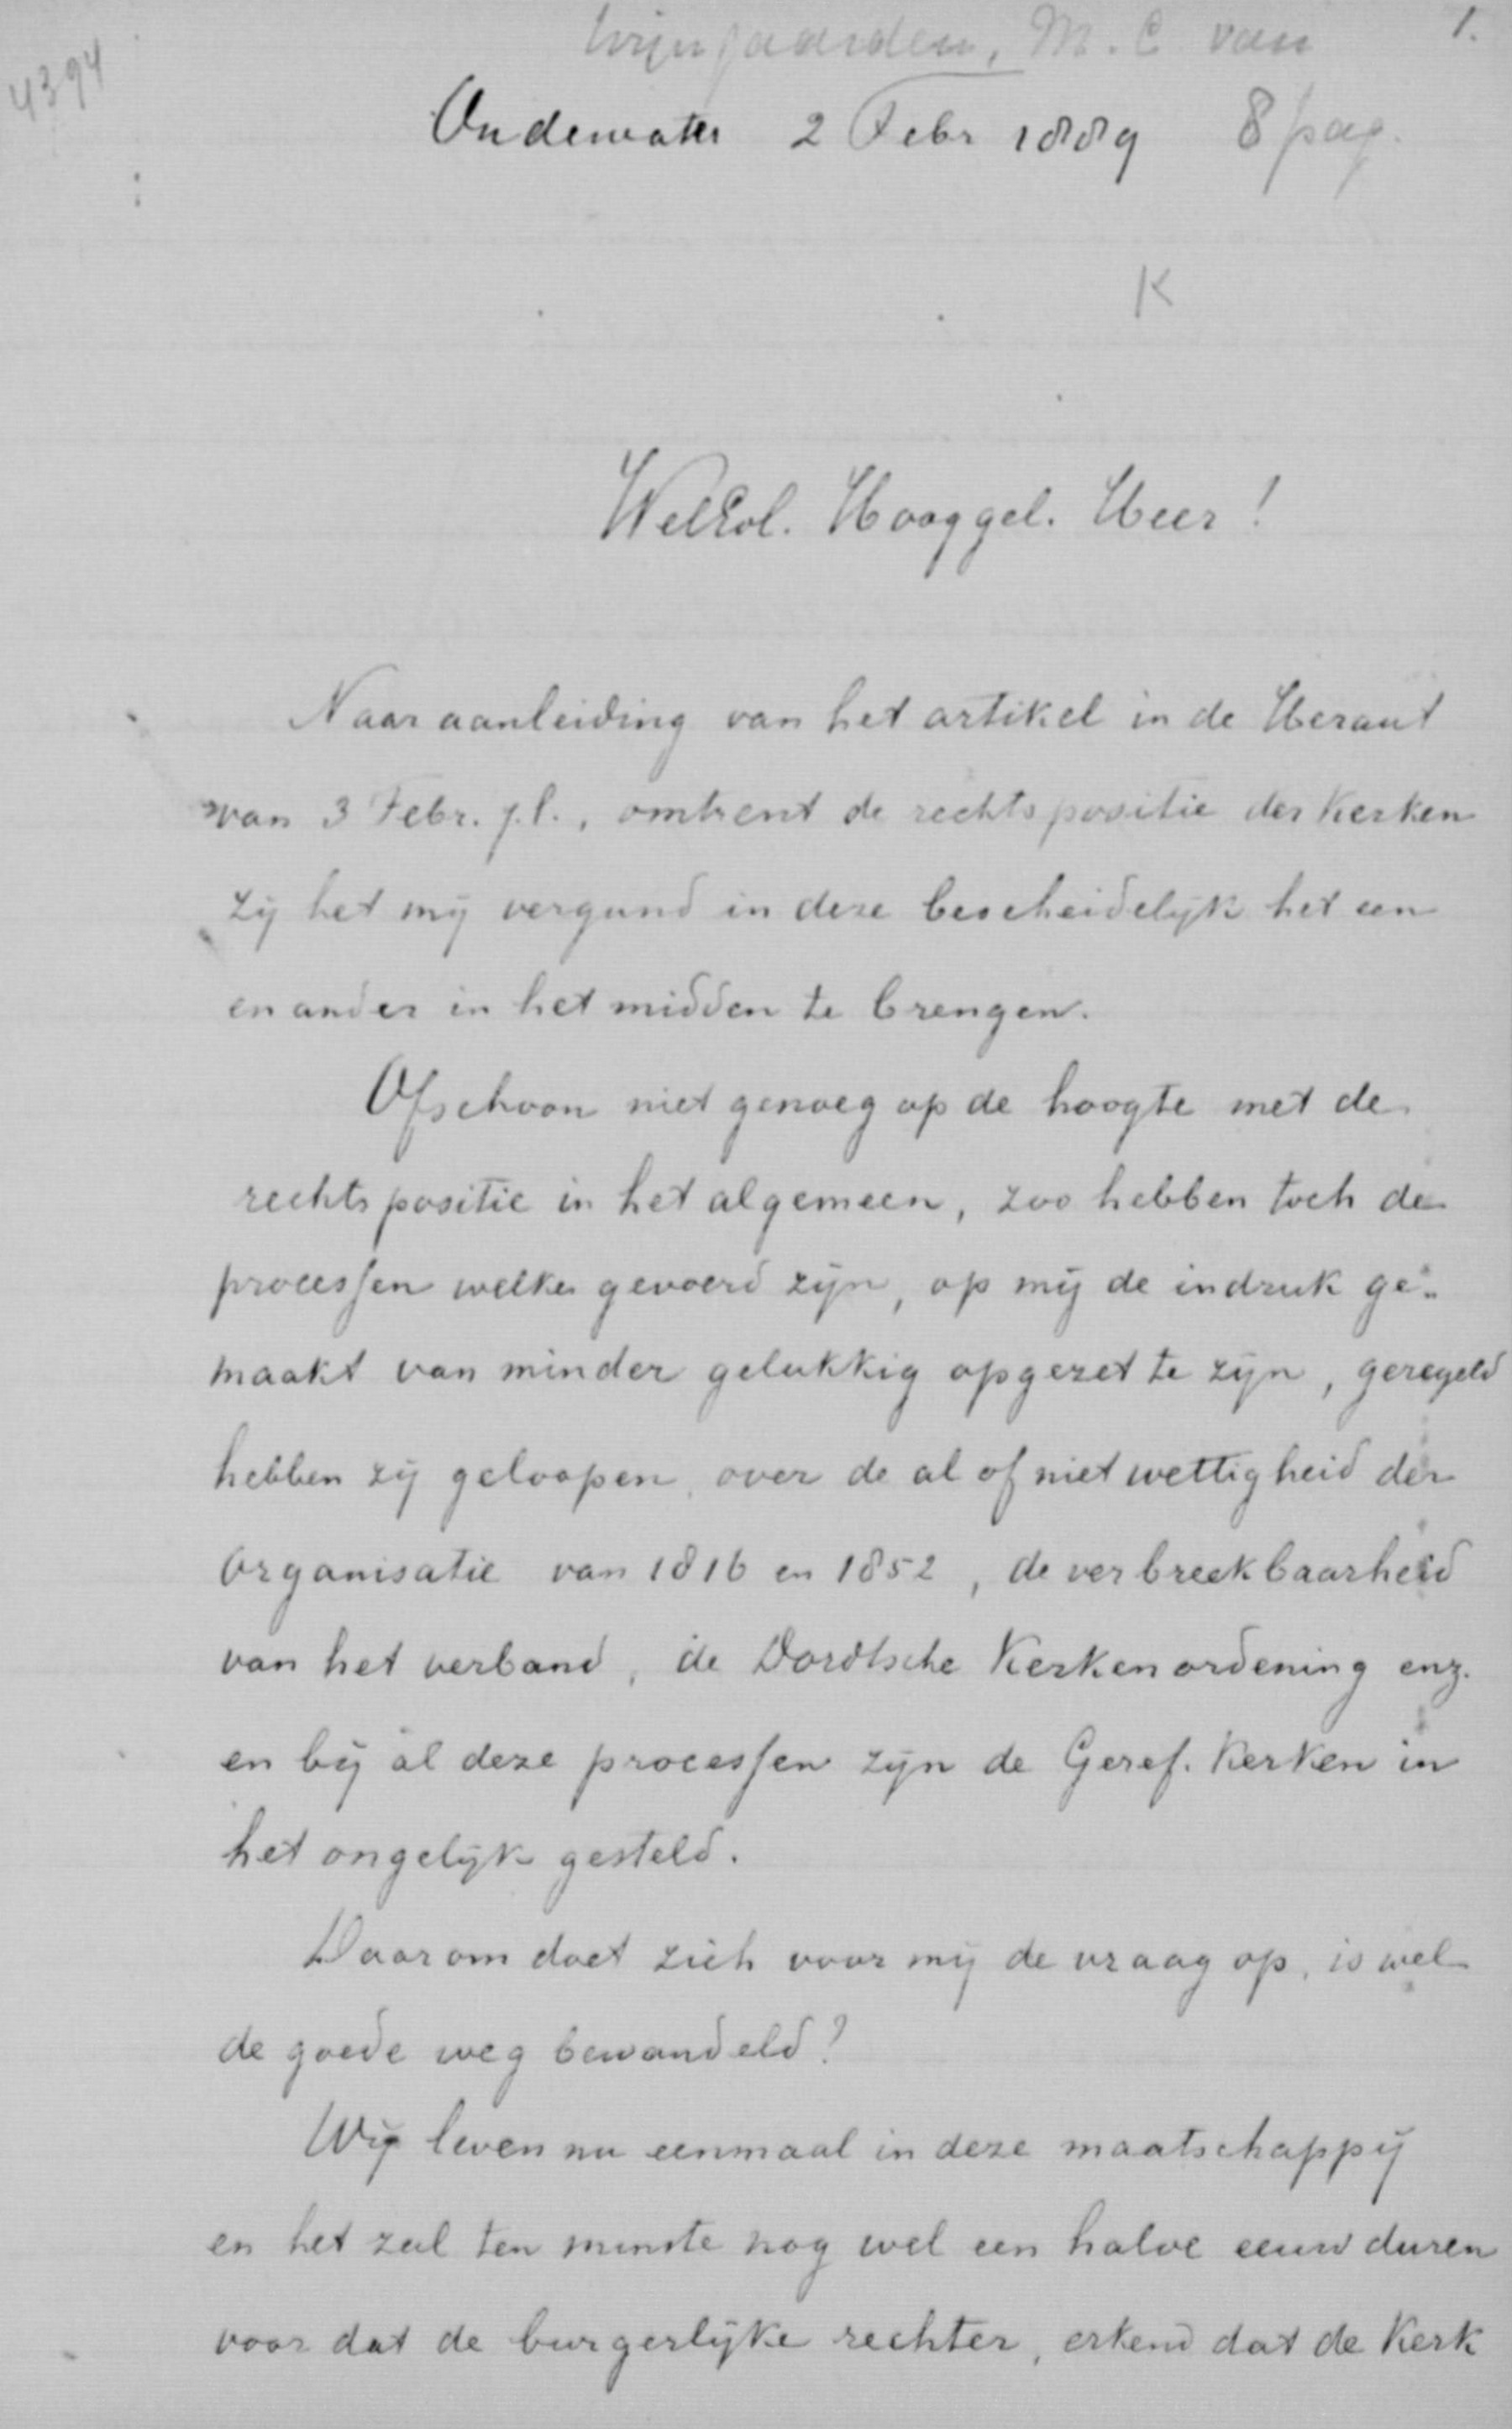 Wijngaarden, M. C van 1.
4394
Oudewater 2 Febr 1889 8 pag.
K
WelEd. Hooggel. Heer!
Naar aanleiding van het artikel in de Heraut
van 3 Febr. j.l., omtrent de rechtspositie der Kerken
zij het mij vergund in deze bescheidelijk het een
en ander in het midden te brengen.
Ofschoon niet genoeg op de hoogte met de
rechtspositie in het algemeen, zoo hebben toch de
processen welke gevoerd zijn, op mij de indruk ge-
maakt van minder gelukkig opgezet te zijn, geregeld
hebben zij geloopen over de al of niet wettigheid der
organisatie van 1816 en 1852, de verbreekbaarheid
van het verband, de Dordtsche Kerkenordening enz.
en bij al deze processen zijn de Geref. Kerken in
het ongelijk gesteld.
Daarom doet zich voor mij de vraag op, is wel
de goede weg bewandeld?
Wij leven nu eenmaal in deze maatschappij
en het zal ten minste nog wel een halve eeuw duren
voor dat de burgerlijke rechter, erkend dat de Kerk